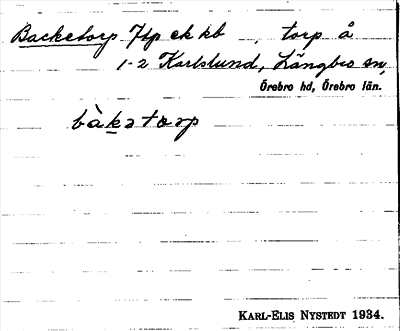 Backetorp Jtp ek kb , torp å
1-2 Karlslund, Längbro sn,
Örebro hd, Örebro län.
bàkatorp
KARL-ELIS NYSTEDT 1934.